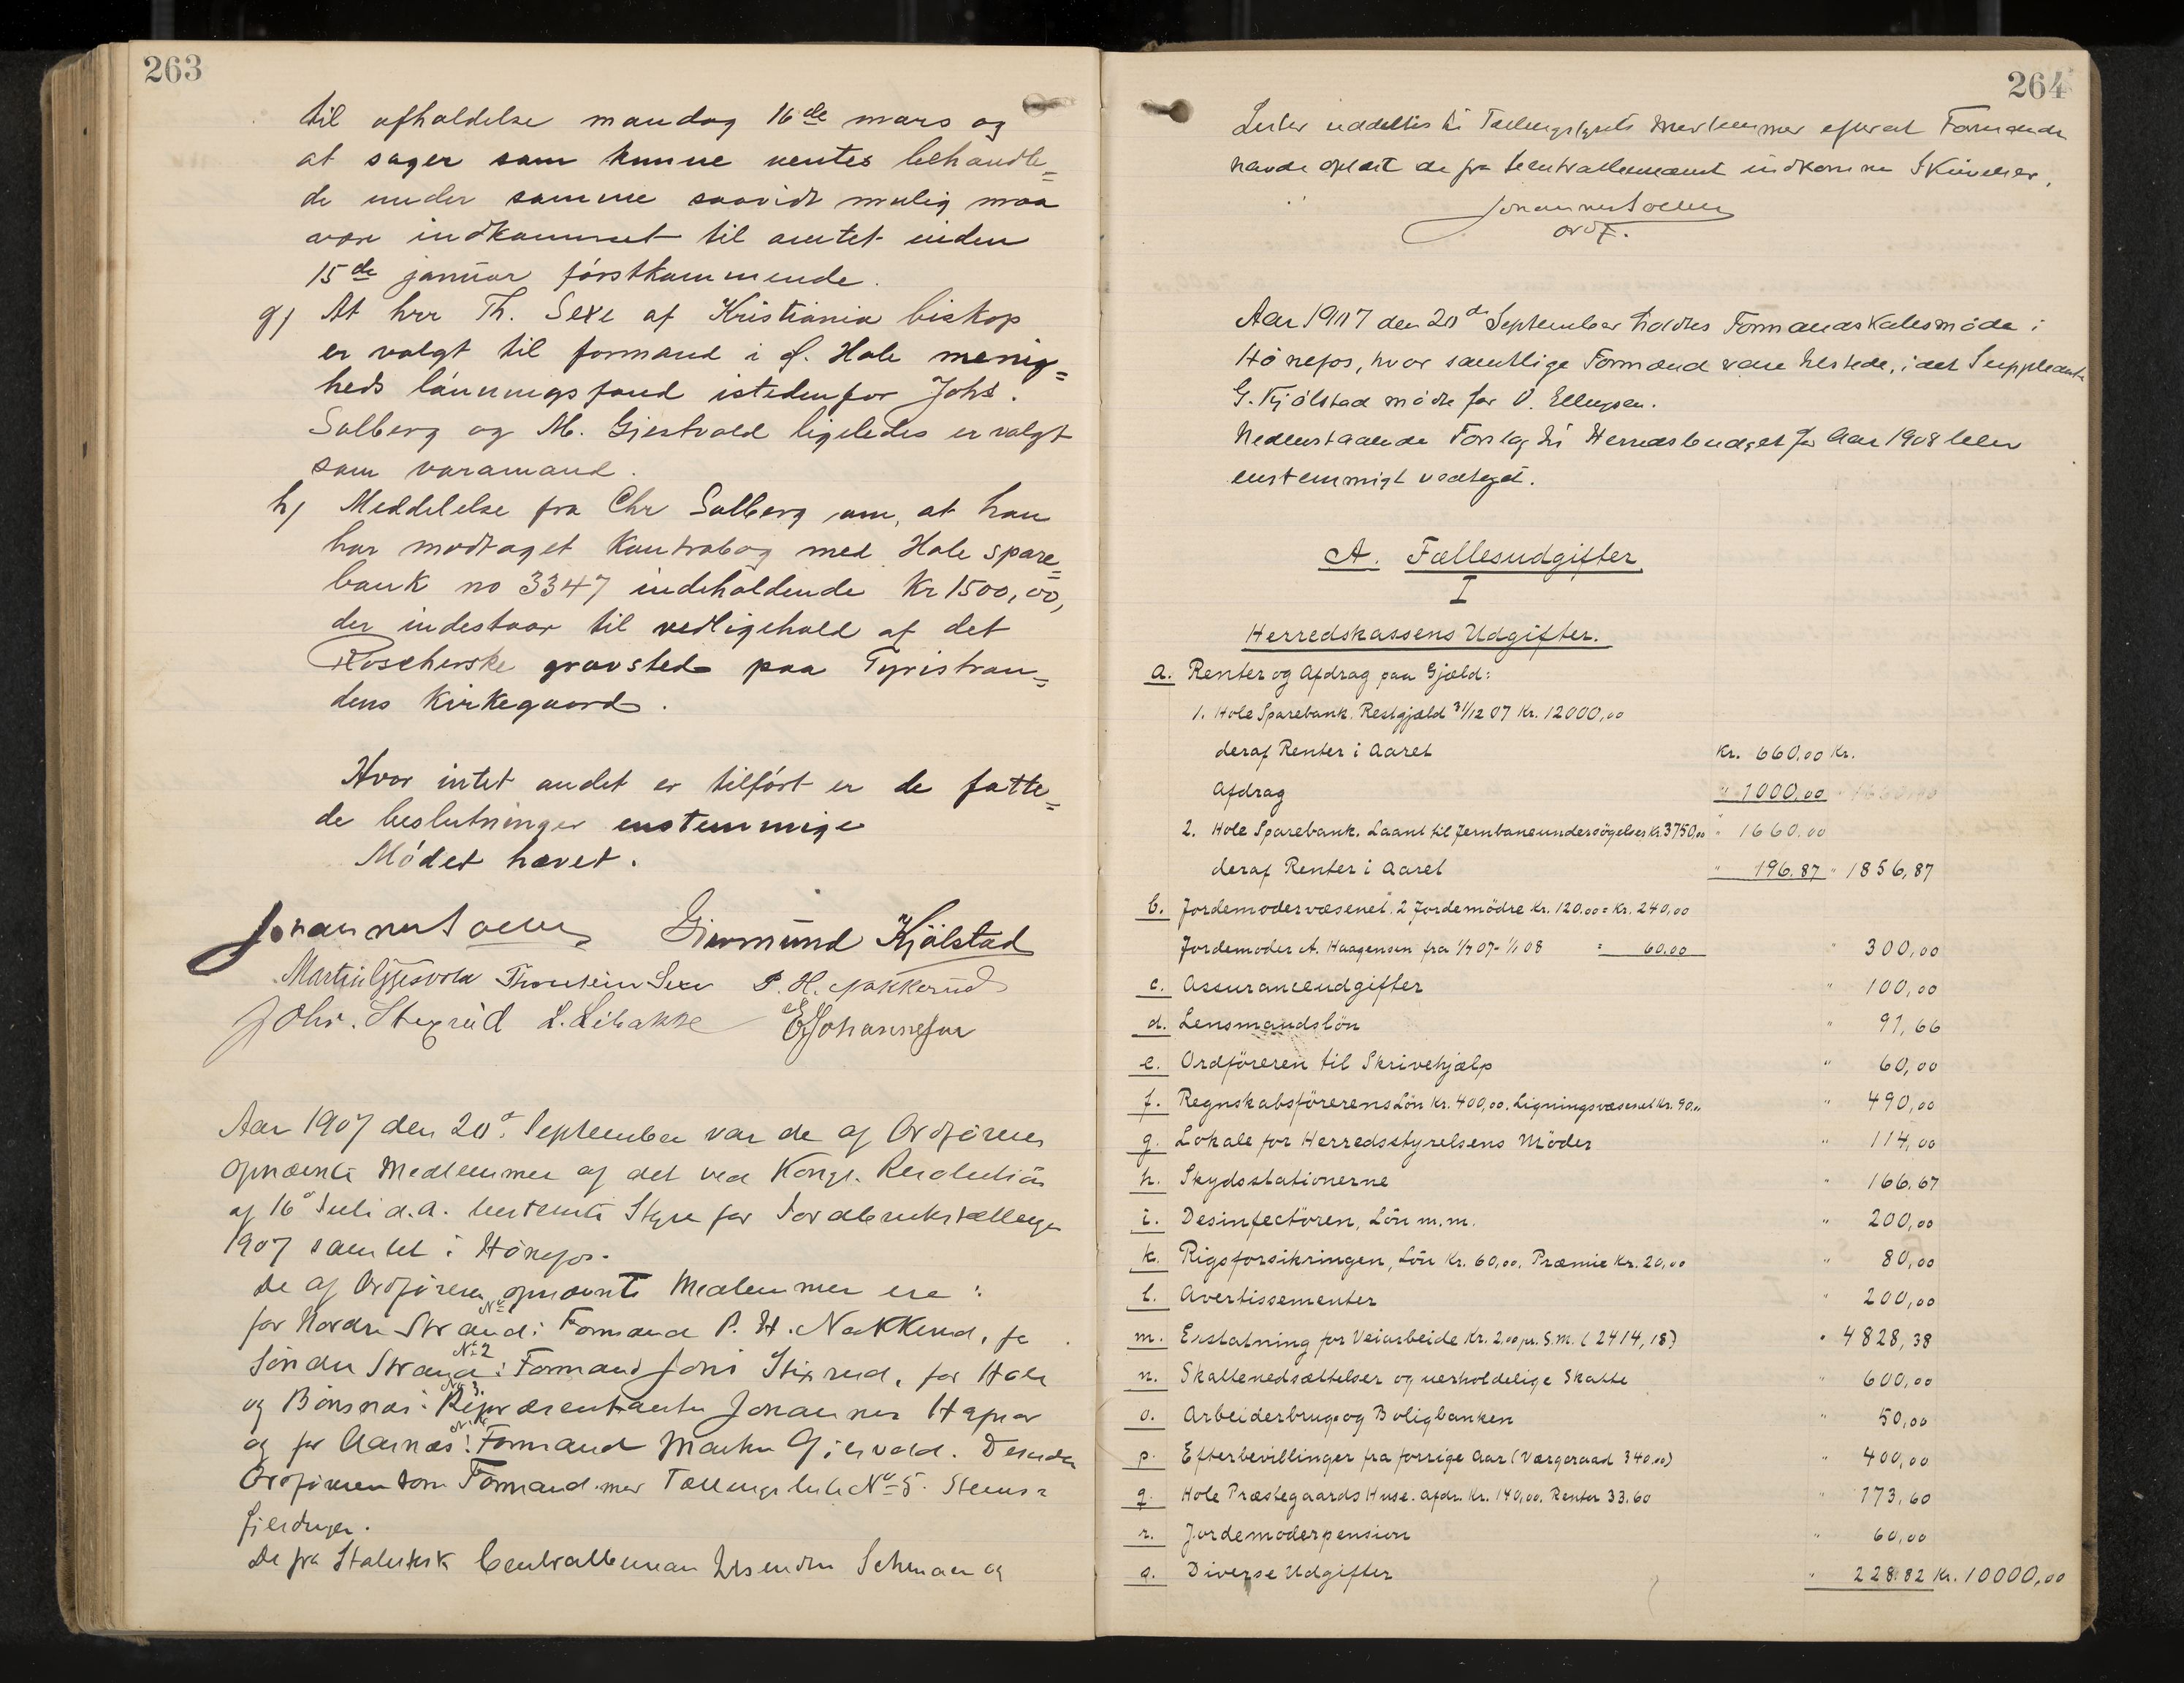 263
til afholdelse mandag 16de mars og
at sager som kunne ventes behandle=
de under samme saavidt mulig maa
være indkommet til amtet inden
15de januar førstkommende.
g) At hrr Th. Sexe af Kristiania biskop
er valgt til formand i Hole menig=
heds lønningsfond istedenfor Johs.
Solberg og M. Gjesvold ligeledes er valgt
som varamand.
h) Meddelelse fra Chr Solberg om, at han
har modtaget Kontrabog med Hole spare=
bank no 3347 indeholdende Kr 1500,00,
der indestaar til vedligehold af det
Roscherske gravsted paa Tyristran=
dens Kirkegaard.
Hvor intet andet er tilført er de fatte=
de beslutninger enstemmige
Mødet hævet.
Johannes Soelberg Giermund Kjølstad
Martin Gjesvold Thorstein Sexe P. H. Nakkerud
Johs. Stixrud L. Libakke E Johannesen
Aar 1907 den 20d. September var de af Ordføreren
opnævnte Medlemmer af det ved Kongl. Resolution
af 16d Juli d.A. bestemte Styre for Jordbrukstællingen
1907 samlet i Hönefos.
De af Ordføreren opnævnte Medlemmer ere:
for Nordre Strand: No 1 Formand P. H. Nakkerud, for
Søndre Strand: No 2 Formand Johs Stixrud, for Hole
og Bönsnæs: No 3. Repræsentanten Johannes
og for Aarnæs: No 4 Formand Martin Gjesvold. Desuden
Ordføreren som Formand med Tællingsliste No 5. Steens=
fjerdingen.
De fra Statistisk Centralbureau tilsendte Schmaer og
264
Lister uddeltes til Tællingsstyrets Medlemmer efterat Formanden
havde oplæst de fra Centralbureauet indkomne Skrivelser.
Johannes Soelberg
ordf.
Aar 1907 den 20de September holdtes Formandskabsmöde i
Hönefos, hvor samtlige Formænd vare tilstede, idet Suppleanten
G. Kjölstad mödte for O. Ellingsen.
Nedenstaaende Forslag til Herredsbudget for Aar 1908 blev
enstemmigt vedtaget.
A. Fællesudgifter
I
Herredskassens Udgifter.
a. Renter og Afdrag paa Gjæld:
1. Hole Sparebank. Restgjæld 31/12 07 Kr. 12000,00
deraf Renter i Aaret Kr. 660,00 Kr.
Afdrag " 1000,00
2. Hole Sparebank. Laant til Jernbaneundersögelser Kr. 3750,00 " 1660.00
deraf Renter i Aaret " 196.87 " 1856,87
b. Jordemodervæsenet. 2 Jordemödre Kr. 120.00 = Kr. 240,00
Jordemoder A. Haagensen fra 1/7 07 - 1/1 08 = 60.00 " 300,00
c. Assuranceudgifter " 100,00
d. Lensmandslön " 91,66
e. Ordföreren til Skrivehjælp " 60,00
f. Regnskabsförerens Lön Kr. 400,00. Ligningsvæsenet Kr. 90.00 " 490,00
g. Lokale for Herredsstyrelsens Möder " 114,00
h. Skydsstationerne " 166.67
i. Desinfectören, Lön m.m. " 200,00
k. Rigsforsikringen, Lön Kr. 60,00. Præmie Kr. 20,00 " 80,00
l. Avertissementer " 200,00
m. Erstatning for Veiarbeide Kr. 2.00 pr. S.M. (2414,18) " 4828,38
n. Skattenedsættelser og uerholdelige Skatte " 600,00
o. Arbeiderbrug og Boligbanken " 50,00
p. Efterbevillinger fra forrige Aar (Værgeraad 340.00) " 400,00
q. Hole Præstegaards Huse. Afdr. Kr. 140,00. Renter 33.60 " 173,60
r. Jordemoderpension " 60,00
s. Diverse Udgifter " 228.82 Kr. 10000,00